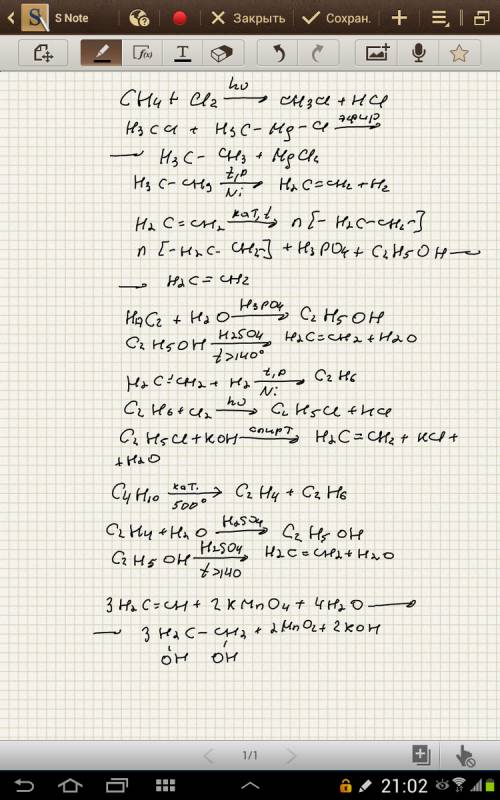 S Note
Закрыть
Сохран.
f(x)
T
CH4 + Cl2 hν → CH3Cl + HCl
H3CCl + H3C-Mg-Cl эфир →
→ H3C-CH3 + MgCl2
H3C-CH3 t,p → Ni H2C=CH2 + H2
H2C=CH2 кат, t → n[-H2C-CH2-]
n[-H2C-CH2-] + H3PO4 + C2H5OH —
→ H2C=CH2
H2C2 + H2O H3PO4 → C2H5OH
C2H5OH H2SO4 → t>140° H2C=CH2 + H2O
H2C=CH2 + H2 t,p → Ni C2H6
C2H6 + Cl2 hν → C2H5Cl + HCl
C2H5Cl + KOH спирт → H2C=CH2 + KCl +
+H2O
C4H10 кат. → 500° C2H4 + C2H6
C2H4 + H2O H2SO4 → C2H5OH
C2H5OH H2SO4 → t>140 H2C=CH2 + H2O
3H2C=CH + 2KMnO4 + 4H2O —
→ 3H2C-CH2 + 2MnO2 + 2KOH
OH OH
1/1
21:02